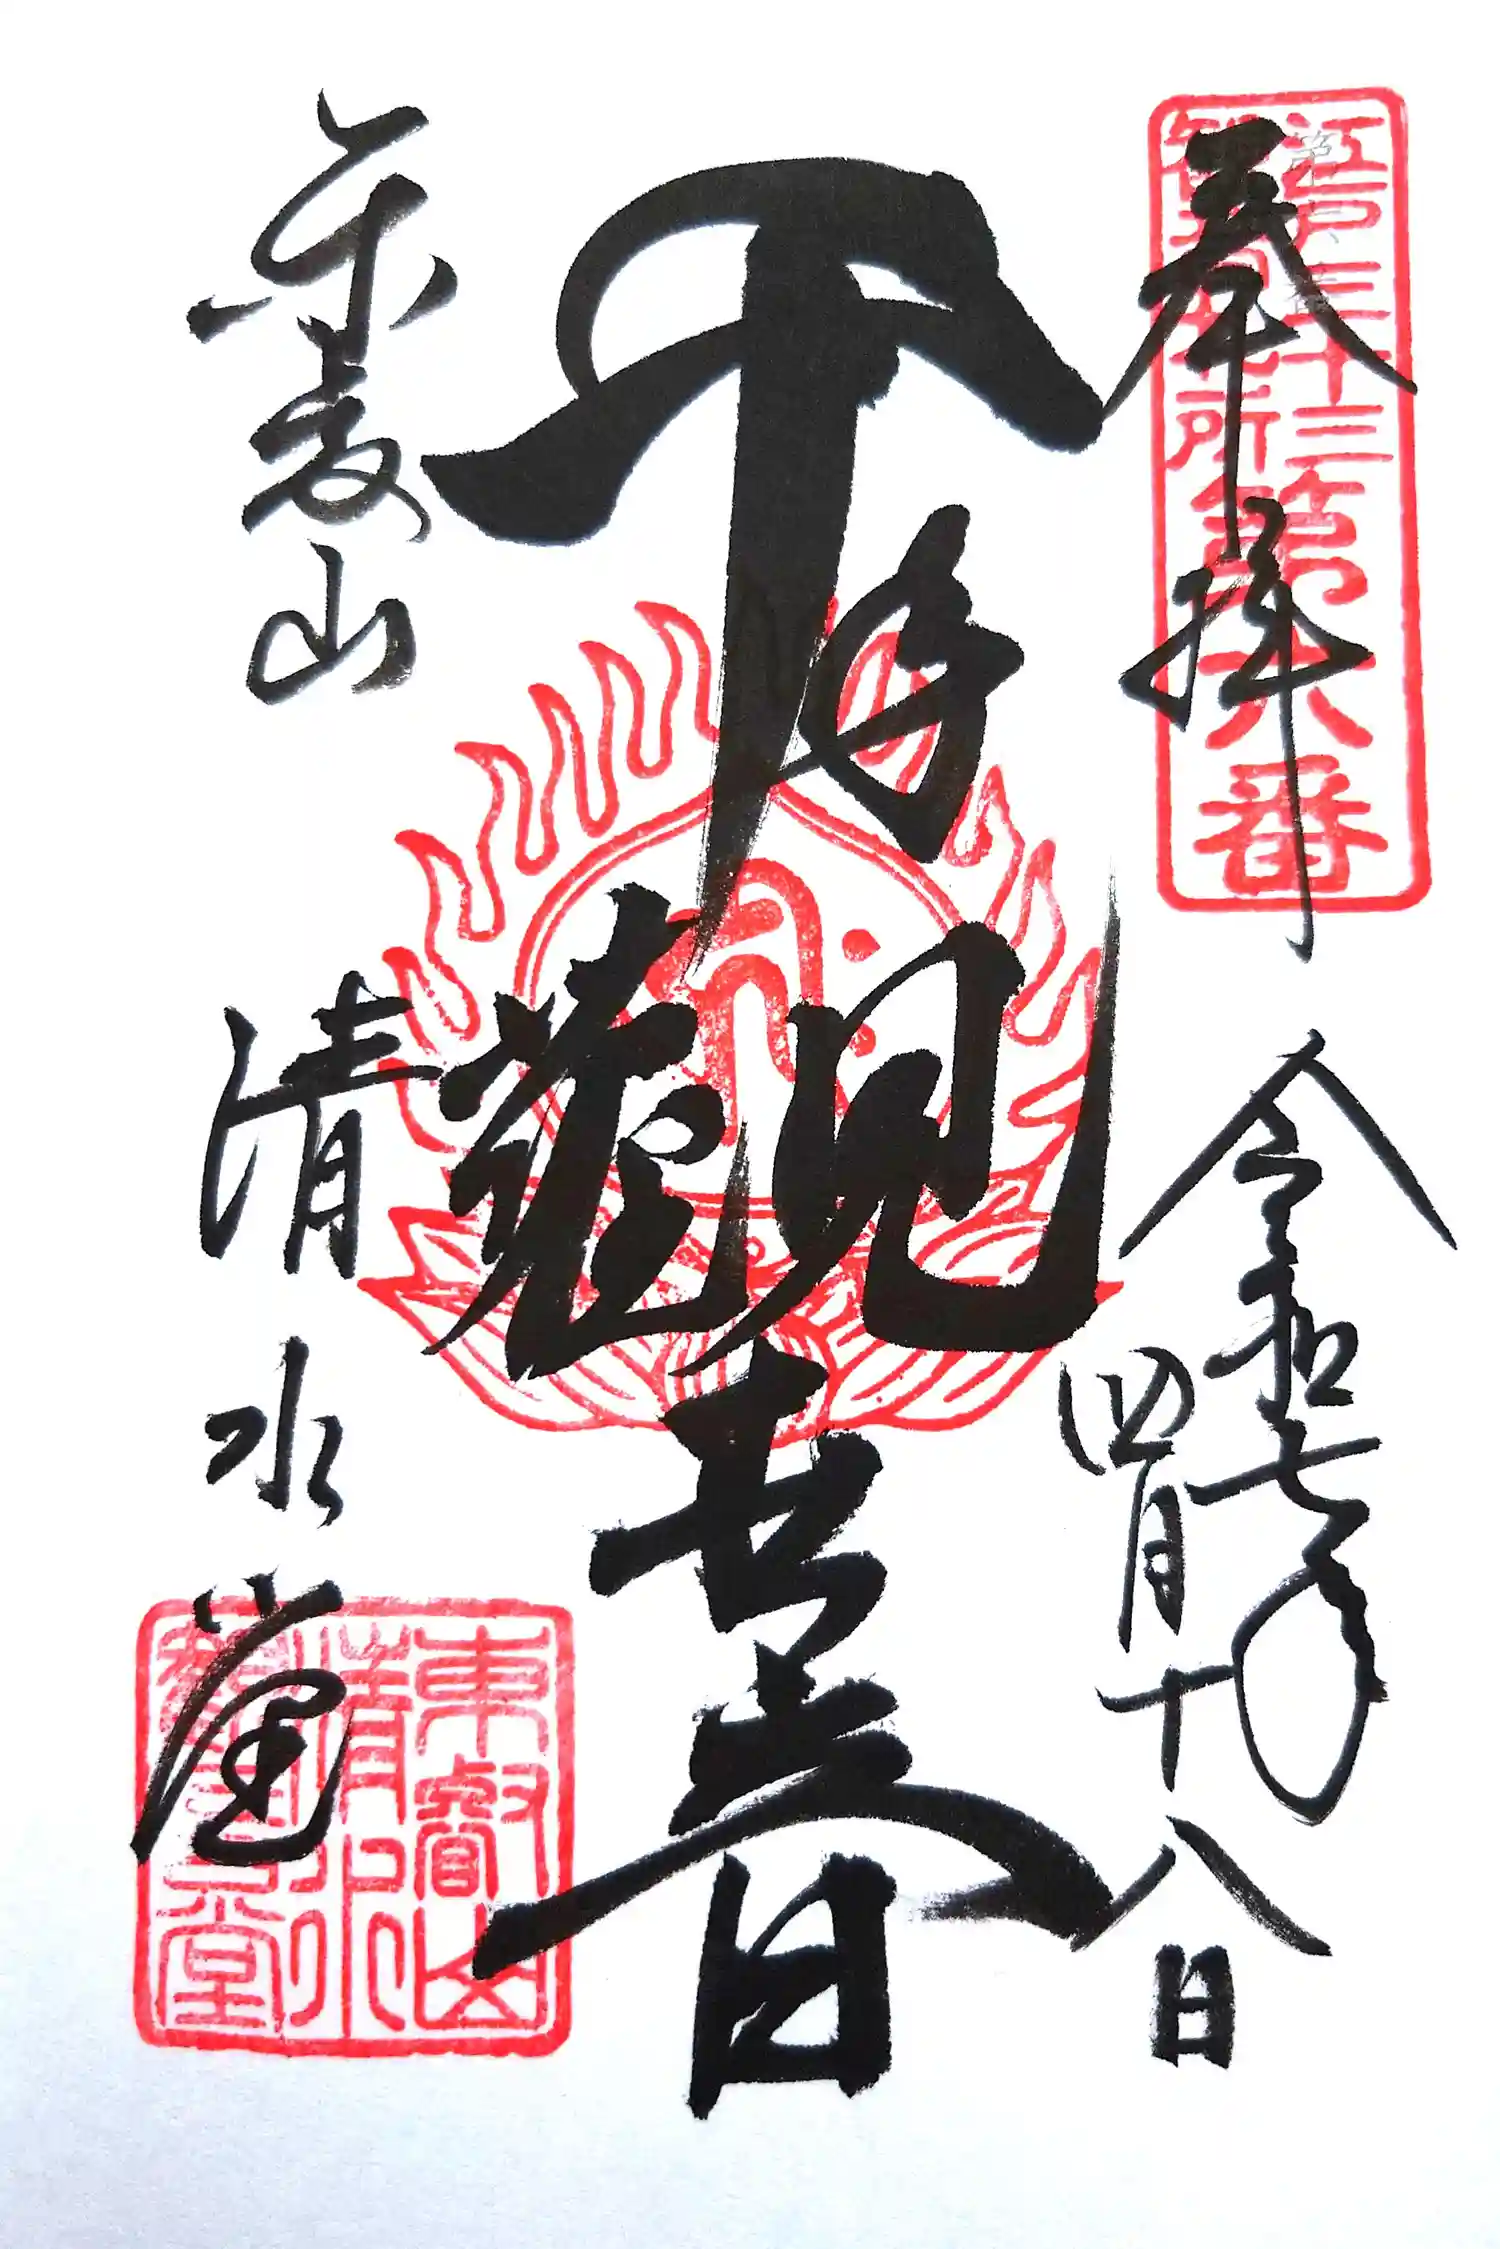 奉拝
江戸三十三
所
第六番
令和七年
四月十八日
千手観世音
東叡山
清水堂
東叡山
清水
観音堂